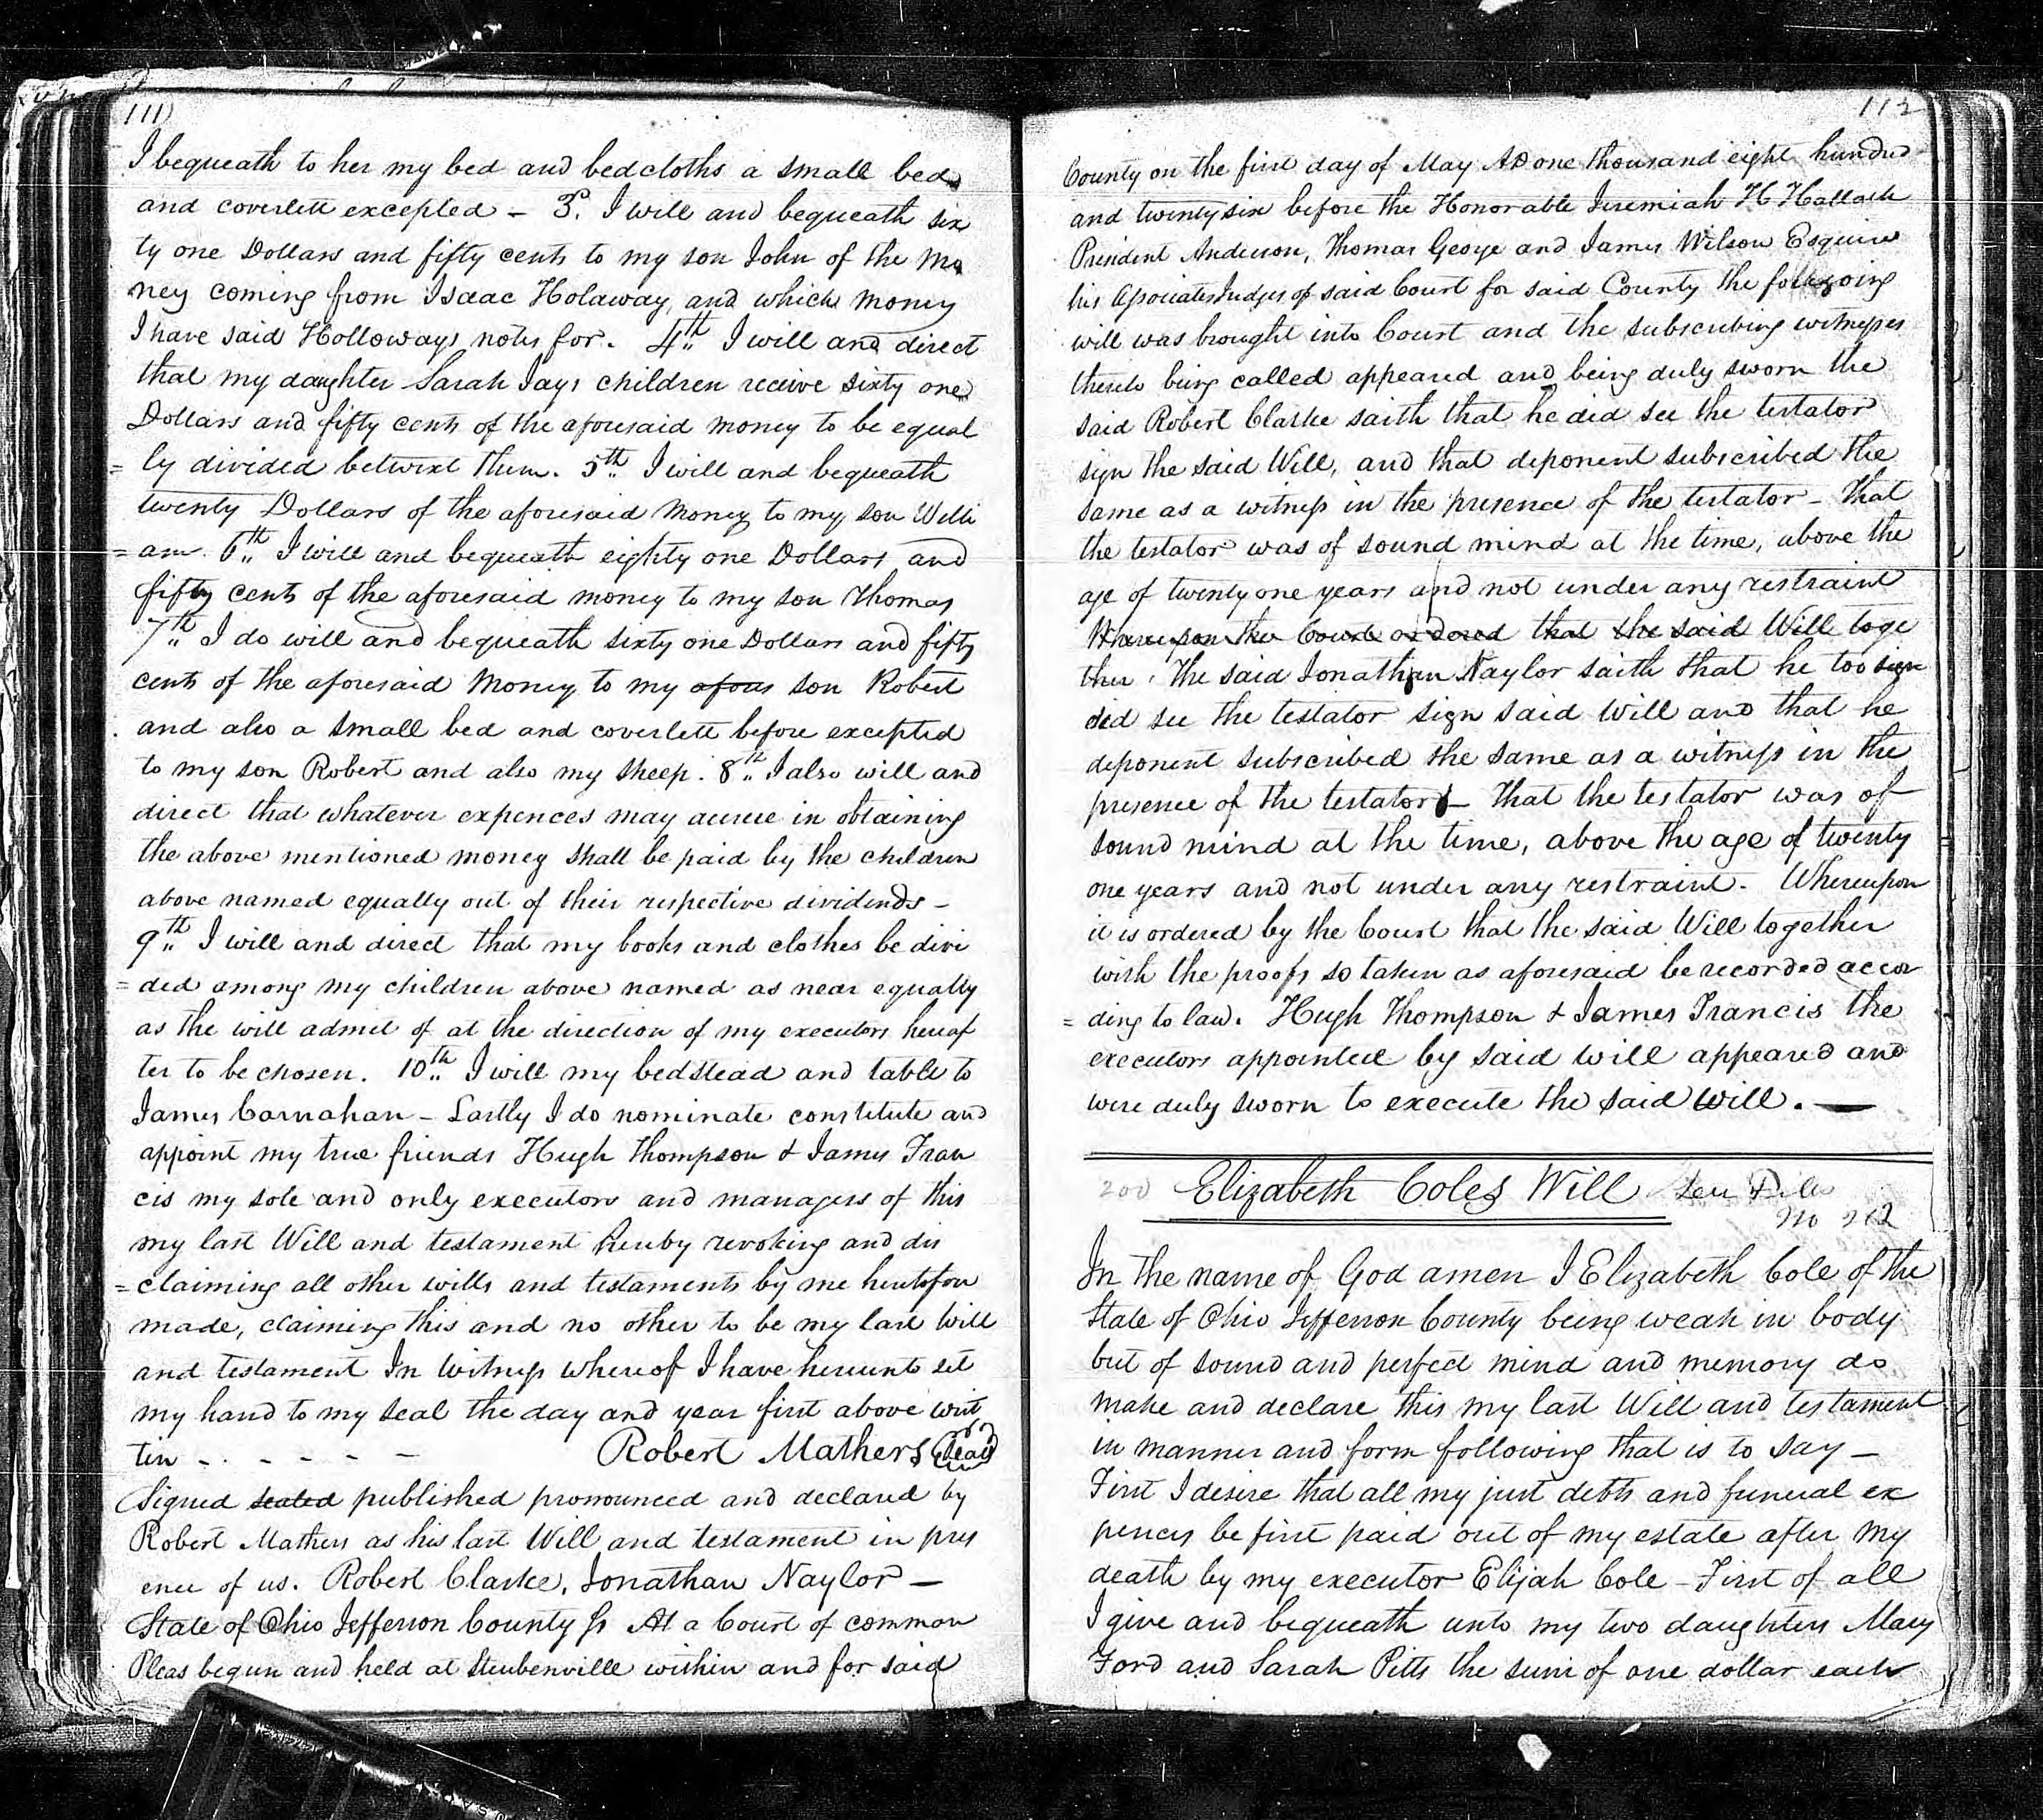 111)
I bequeath to her my bed and bedcloths a small bed
and coverlett excepted - 3d. I will and bequeath six
ty one Dollars and fifty cents to my son John of the Mo
ney coming from Isaac Holaway, and which money
I have said Holloways notes for. 4th I will and direct
that my daughter Sarah Jays children receive sixty one
Dollars and fifty cents of the aforesaid money to be equal
= ly divided betwixt them. 5th I will and bequeath
twenty Dollars of the aforesaid Money to my son Willi
= am. 6th I will and bequeath eighty one Dollars and
fifty cents of the aforesaid money to my son Thomas
7th I do will and bequeath sixty one Dollars and fifty
cents of the aforesaid Money to my afores son Robert
and also a small bed and coverlett before excepted
to my son Robert and also my sheep. 8th I also will and
direct that whatever expences may accrue in obtaining
the above mentioned money shall be paid by the children
above named equally out of their respective dividends -
9th I will and direct that my books and clothes be divi
= ded among my children above named as near equally
as the will admit of at the direction of my executors hereaf
ter to be chosen. 10th I will my bedstead and table to
James Carnahan - Lastly I do nominate constitute and
appoint my true friends Hugh Thompson & James Fran
cis my sole and only executors and managers of this
my last Will and testament hereby revoking and dis
= claiming all other wills and testaments by me heretofore
made, claiming this and no other to be my last Will
and testament In Witness whereof I have hereunto set
my hand to my seal the day and year first above writ
ten - - - - - - Robert Mathers Seal
Signed sealed published pronounced and declared by
Robert Mathers as his last Will and testament in pres
ence of us. Robert Clarke, Jonathan Naylor -
State of Ohio Jefferson County Ss At a Court of common
Pleas begun and held at Steubenville within and for said
112
County on the first day of May AD one thousand eight hundred
and twenty six before the Honorable Jeremiah H Hallock
President Anderson, Thomas George and James Wilson Esquires
his Associates Judges of said Court for said County the foregoing
will was brought into Court and the subscribing witnesses
thereto being called appeared and being duly sworn the
said Robert Clarke saith that he did see the testator
sign the said Will, and that deponent subscribed the
same as a witness in the presence of the testator - That
the testator was of sound mind at the time, above the
age of twenty one years and not under any restraint
Whereupon the Court ordered that the said Will toge
ther. The said Jonathan Naylor saith that he too sign
did see the testator sign said Will and that he
deponent subscribed the same as a witness in the
presence of the testator - That the testator was of
sound mind at the time, above the age of twenty
one years and not under any restraint - Whereupon
it is ordered by the Court that the said Will together
with the proofs so taken as aforesaid be recorded accor
= ding to law. Hugh Thompson & James Francis the
executors appointed by said will appeared and
were duly sworn to execute the said Will. -
200 Elizabeth Coles Will
In the name of God amen I Elizabeth Cole of the
State of Ohio Jefferson County being weak in body
but of sound and perfect mind and memory do
make and declare this my last Will and testament
in manner and form following that is to say -
First I desire that all my just debts and funeral ex
pences be first paid out of my estate after my
death by my executor Elijah Cole - First of all
I give and bequeath unto my two daughters Mary
Ford and Sarah Pitts the sum of one dollar each